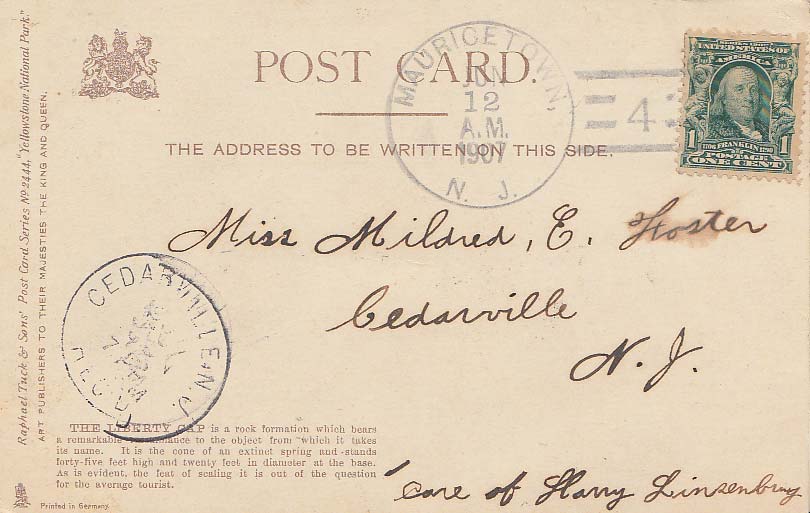 POST CARD.
THE ADDRESS TO BE WRITTEN ON THIS SIDE.
MAURICETOWN,
JUN
12
A.M.
1907
N. J.
4
UNITED STATES OF
AMERICA
1 1
FRANKLIN
POSTAGE
ONE CENT
Miss Mildred, E. Foster
Cedarville
N. J.
CEDARVILLE N.J.
REC'D.
THE LIBERTY CAP is a rock formation which bears
a remarkable resemblance to the object from which it takes
its name. It is the cone of an extinct spring and stands
forty-five feet high and twenty feet in diameter at the base.
As is evident, the feat of scaling it is out of the question
for the average tourist.
care of Harry Linzenbury
Printed in Germany.
Raphael Tuck & Sons' Post Card Series No 2444, "Yellowstone National Park."
ART PUBLISHERS TO THEIR MAJESTIES THE KING AND QUEEN.